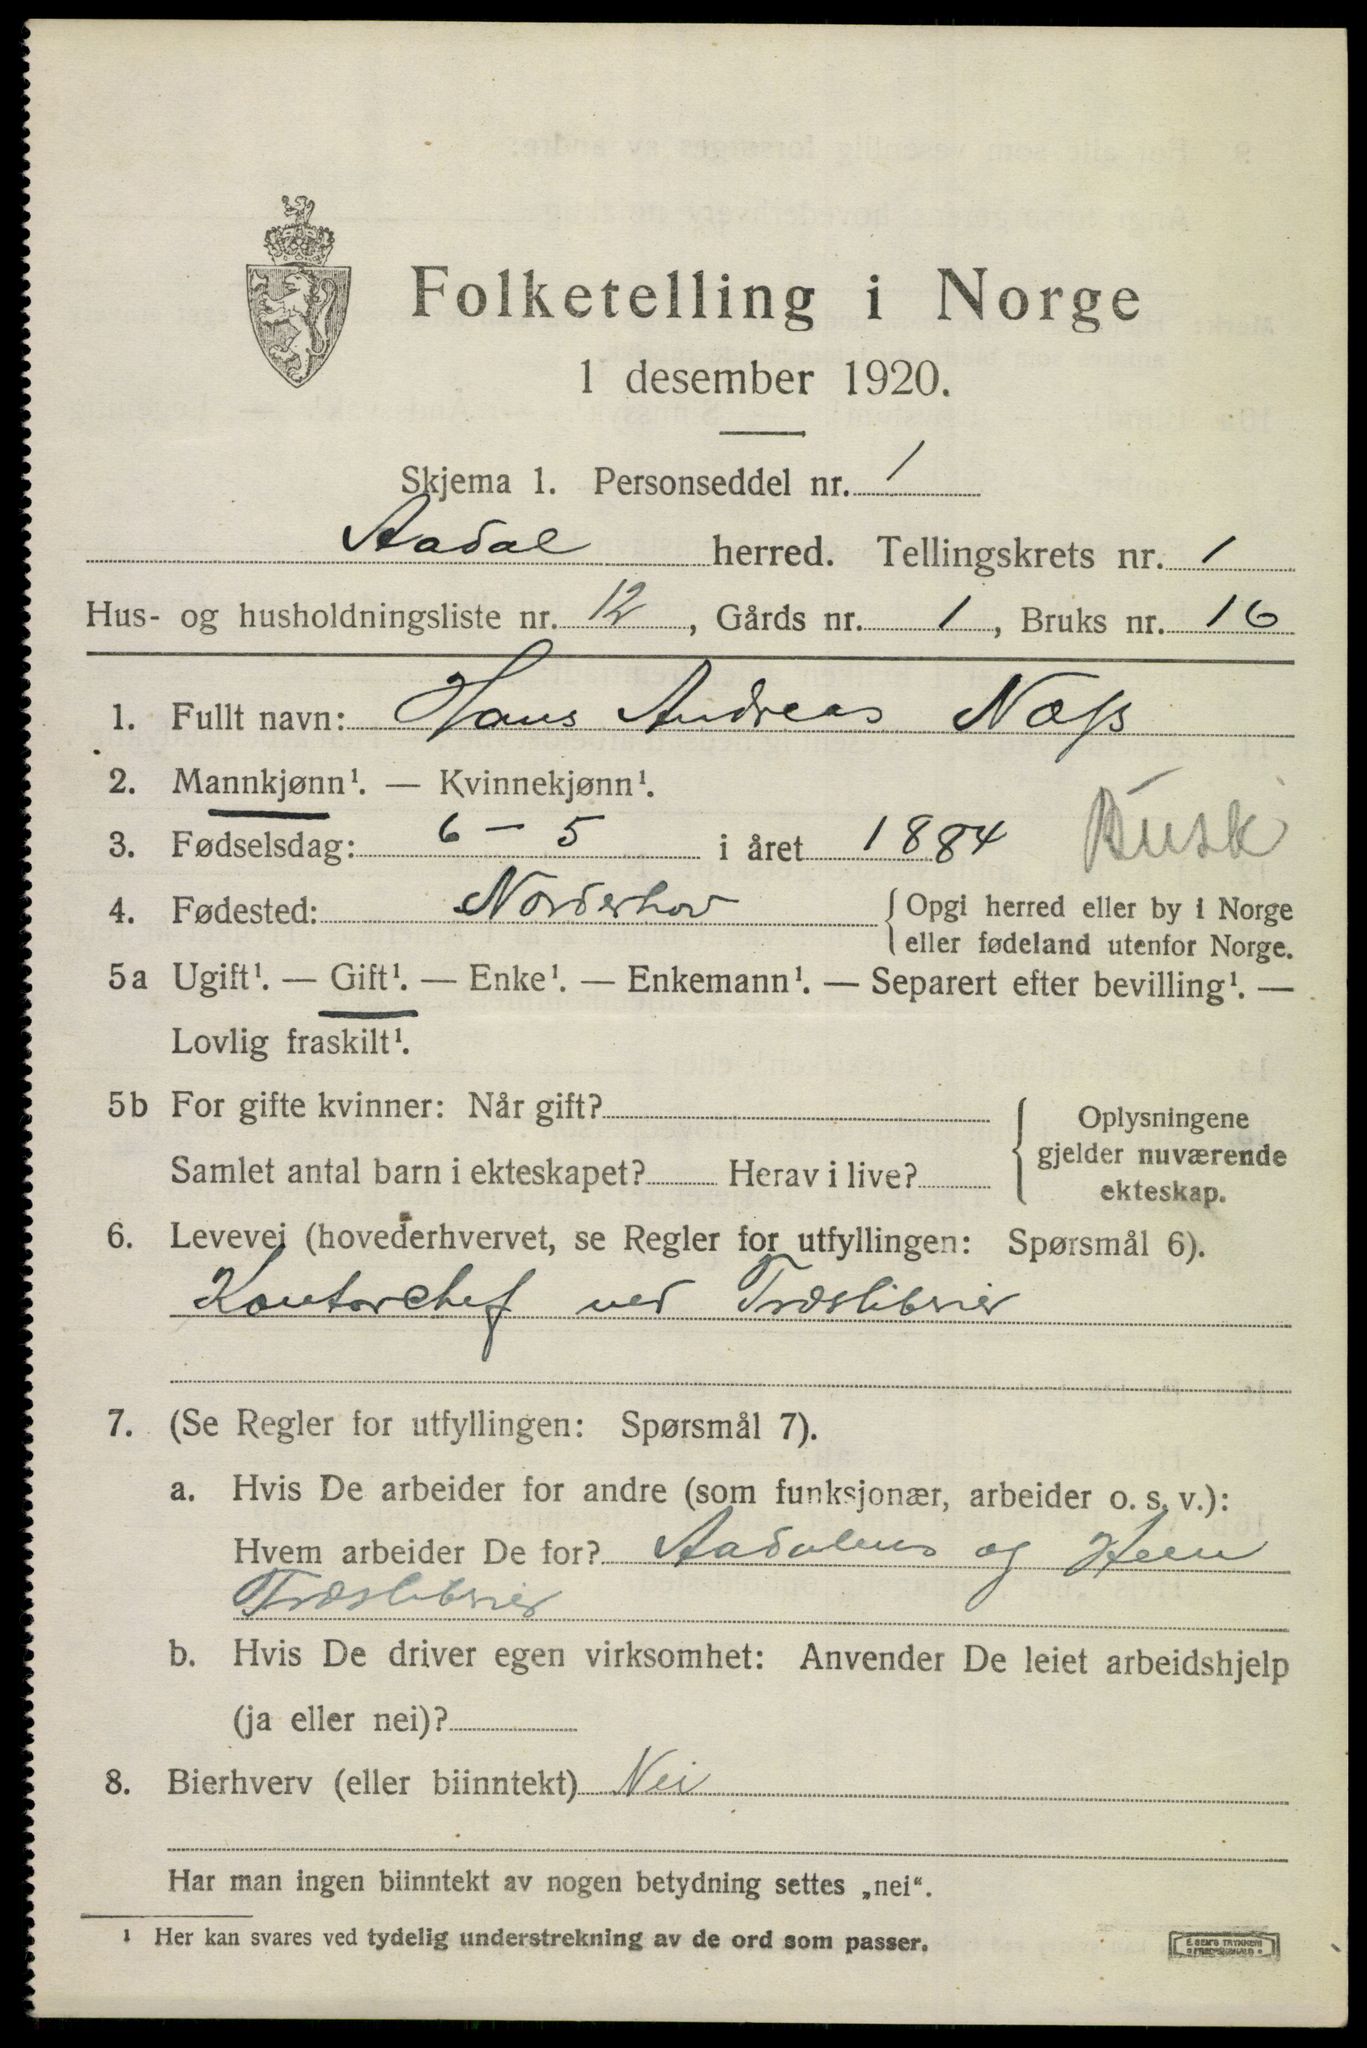 Folketelling i Norge
1 desember 1920.
Skjema 1. Personseddel nr. 1
Aadal herred. Tellingskrets nr. 1
Hus- og husholdningsliste nr. 12, Gårds nr. 1, Bruks nr. 16
1. Fullt navn: Hans Andreas Næss
2. Mannkjønn¹. — Kvinnekjønn¹.
Busk
3. Fødselsdag: 6 – 5 i året 1884
4. Fødested: Norderhov { Opgi herred eller by i Norge
eller fødeland utenfor Norge.
5a Ugift¹. — Gift¹. — Enke¹. — Enkemann¹. — Separert efter bevilling¹. —
Lovlig fraskilt¹.
5b For gifte kvinner: Når gift?
Samlet antal barn i ekteskapet? Herav i live?
Oplysningene
gjelder nuværende
ekteskap.
6. Levevei (hovederhvervet, se Regler for utfyllingen: Spørsmål 6).
Kontorchef ved Træsliberier
7. (Se Regler for utfyllingen: Spørsmål 7).
a. Hvis De arbeider for andre (som funksjonær, arbeider o. s. v.):
Hvem arbeider De for? Aadalens og Heen
Træsliberier
b. Hvis De driver egen virksomhet: Anvender De leiet arbeidshjelp
(ja eller nei)?
8. Bierhverv (eller biinntekt) Nei
Har man ingen biinntekt av nogen betydning settes „nei“.
¹ Her kan svares ved tydelig understrekning av de ord som passer.